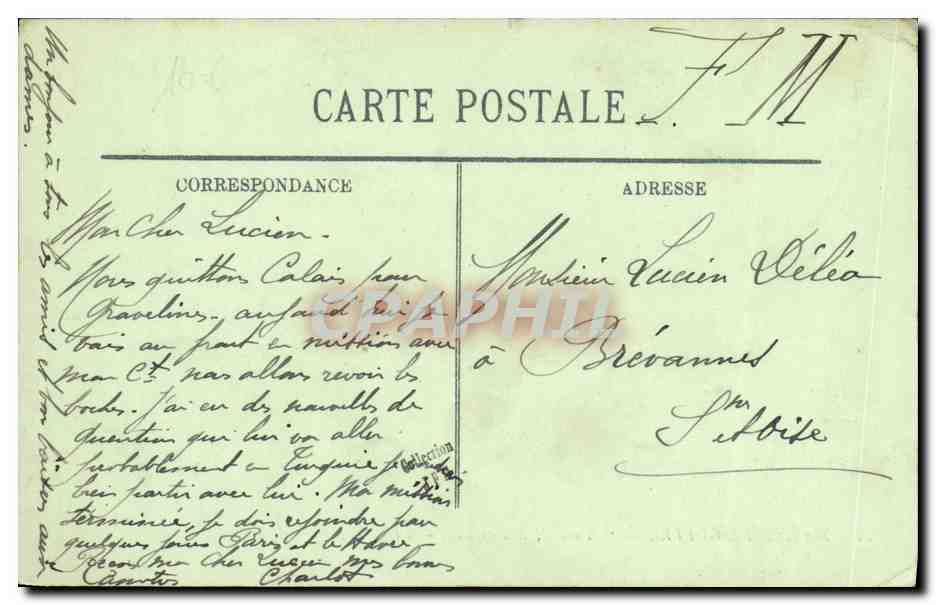 F. M
CARTE POSTALE
CORRESPONDANCE
Mon Cher Lucien -
Nous quittons Calais pour
Gravelines - aujourd'hui je
vais au front en mission avec
mon Ct. nous allons revoir les
boches. J'ai eu des nouvelles de
Quentin qui lui va aller
probablement en Turquie je
bien partir avec lui. Ma mission
terminée, je dois rejoindre pour
quelques jours Paris et le Havre -
Reçois mon Cher Lucien mes bonnes
Charlot
Un bonjour à tous les amis et bon baiser aux
dames.
ADRESSE
Monsieur Lucien Déléa
à Brévannes
S et Oise
CPAPHIL
Collection